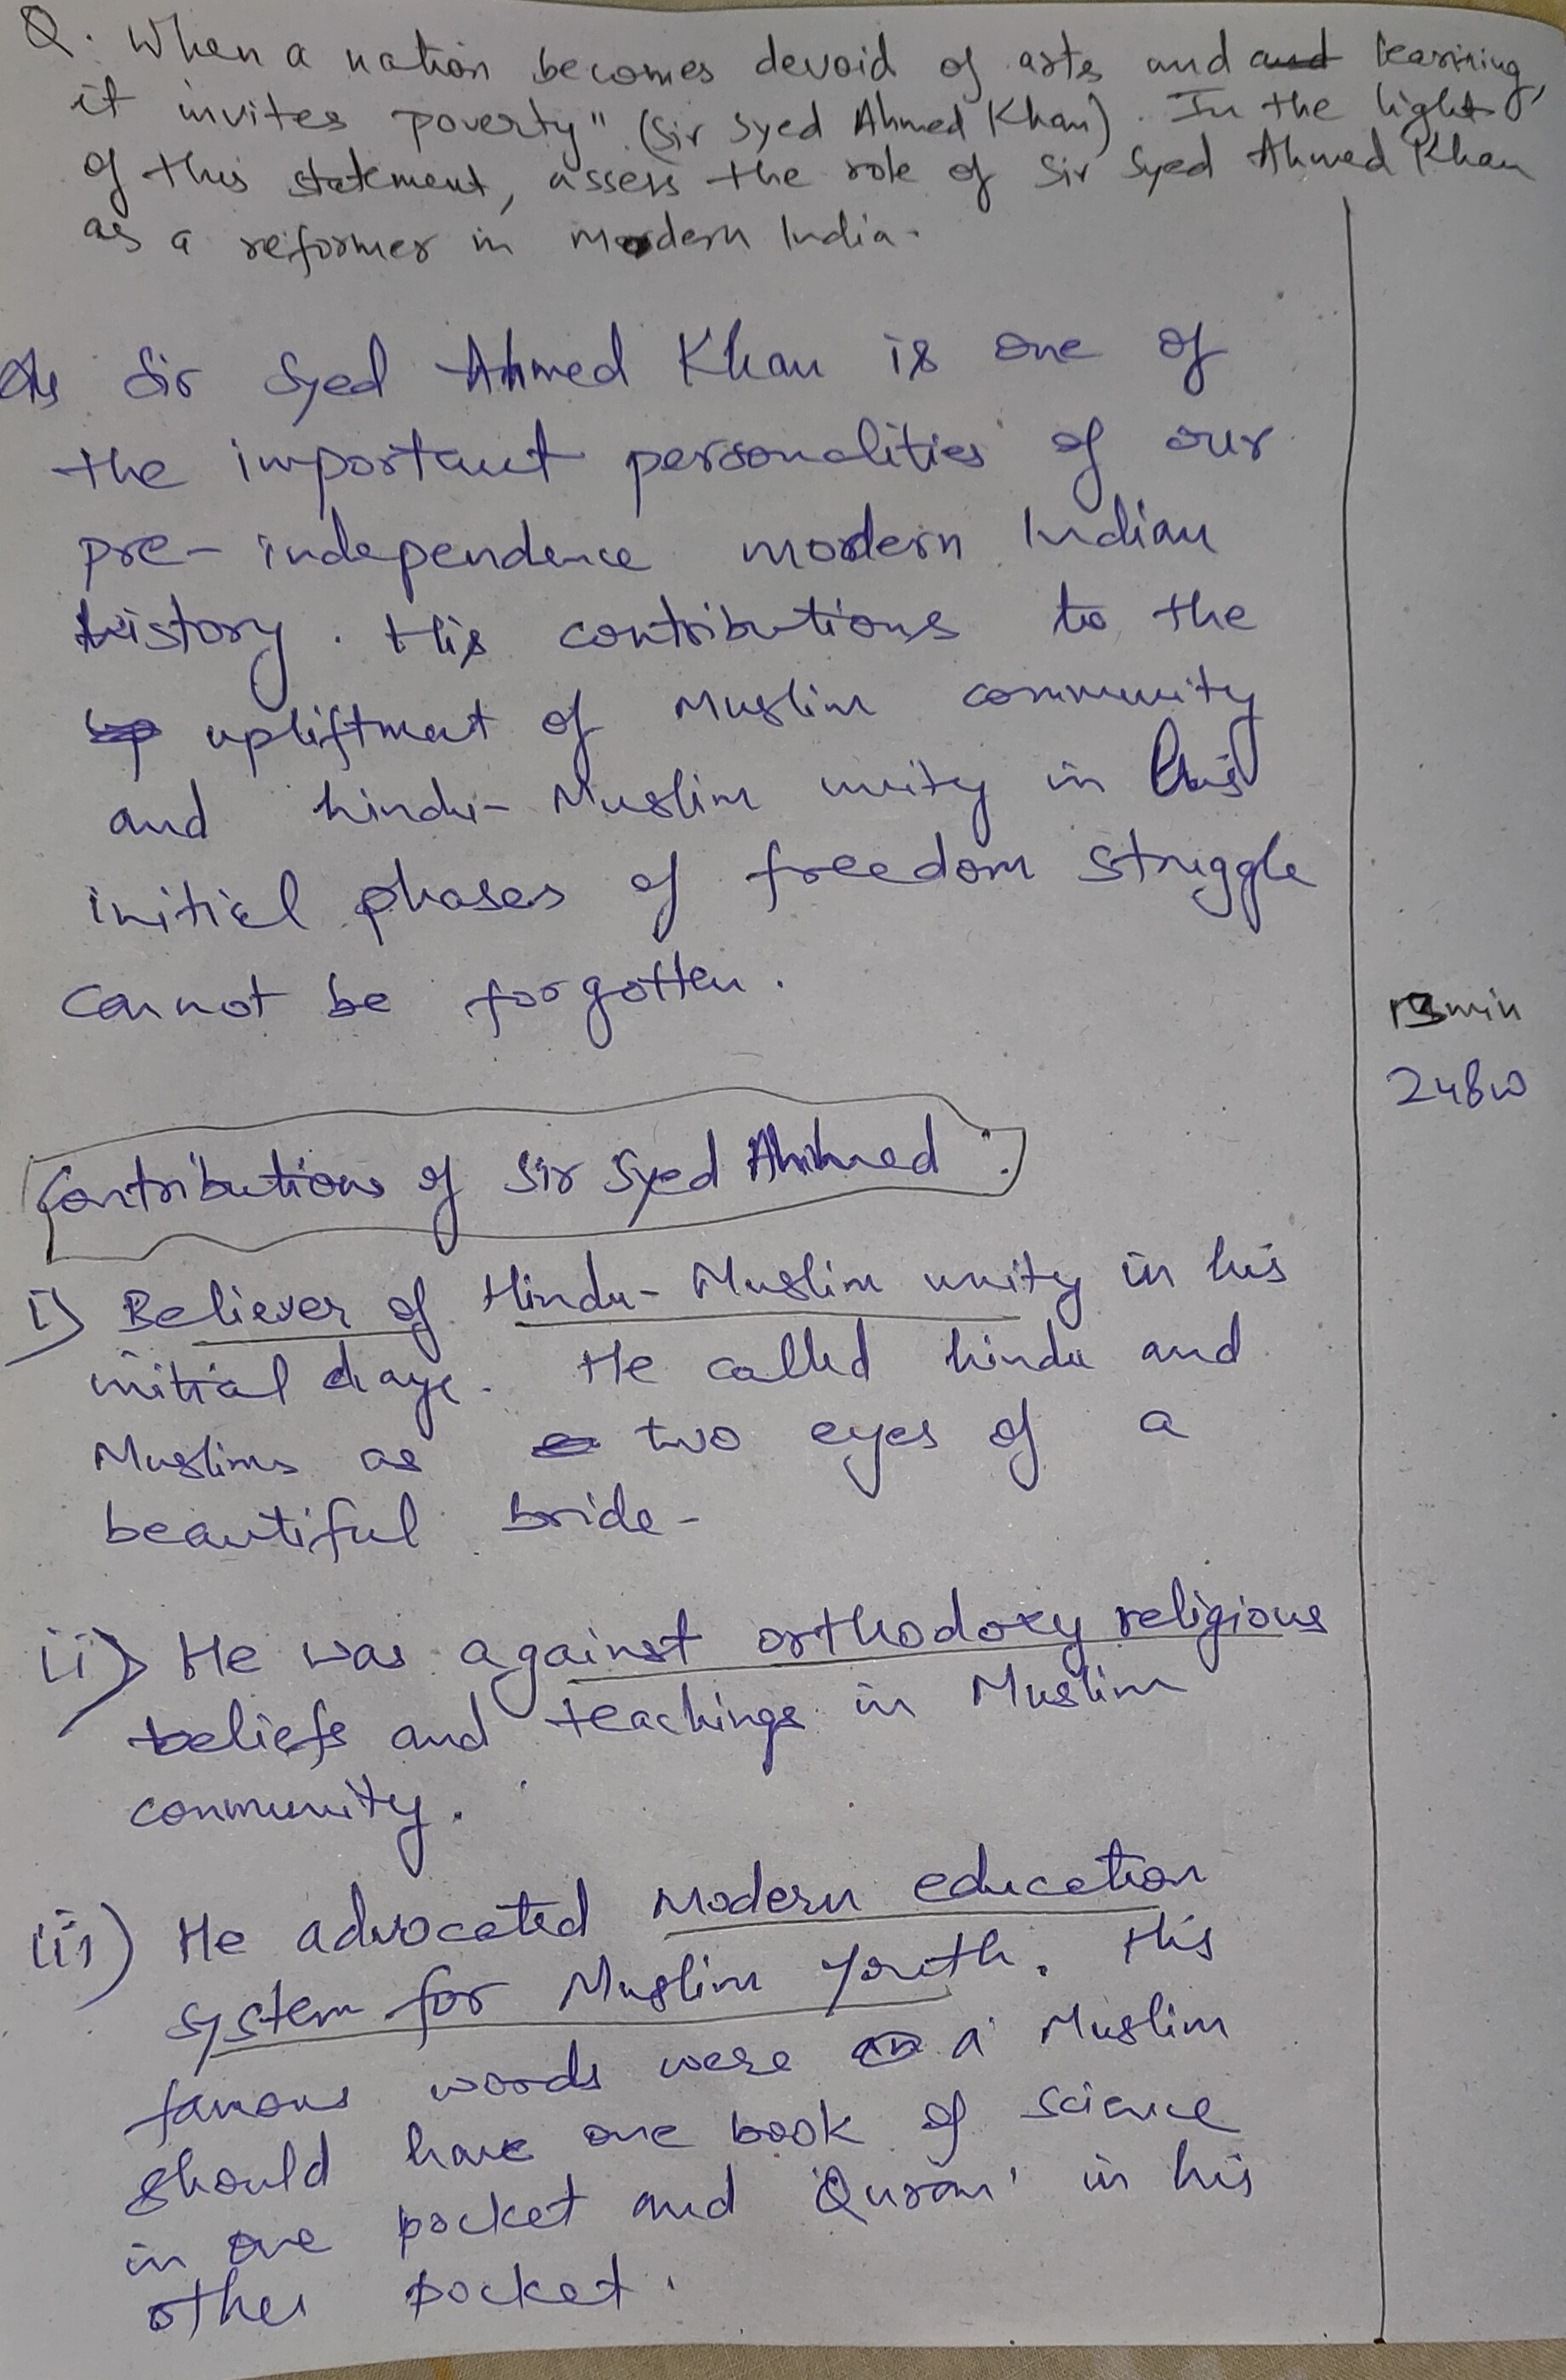 Q. When a nation becomes devoid of arts and and learning,
it invites poverty" (Sir Syed Ahmed Khan). In the light
of this statement, assess the role of Sir Syed Ahmed Khan
as a reformer in modern India.
As Sir Syed Ahmed Khan is one of
the important personalities of our
pre-independence modern Indian
history. His contributions to the
up upliftment of Muslim community
and hindu-Muslim unity in his
initial phases of freedom struggle
cannot be forgotten.
13min
248w
Contributions of Sir Syed Ahmed :
i) Believer of Hindu-Muslim unity in his
initial days. He called hindu and
Muslims as two eyes of a
beautiful bride-
ii) He was against orthodoxy religious
beliefs and teachings in Muslim
community.
iii) He advocated modern education
system for Muslim youth. His
famous words were a Muslim
should have one book of science
in one pocket and 'Quran' in his
other pocket.